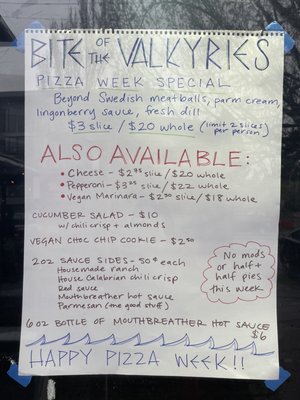 BITE OF THE VALKYRIES
PIZZA WEEK SPECIAL
Beyond Swedish meatballs, parm cream,
lingonberry sauce, fresh dill
$3 slice / $20 whole (limit 2 slices per person)
ALSO AVAILABLE:
• Cheese - $2.75 slice / $20 whole
• Pepperoni - $3.25 slice / $22 whole
• Vegan Marinara - $2.50 slice / $18 whole
CUCUMBER SALAD - $10
w/ chili crisp + almonds
VEGAN CHOC CHIP COOKIE - $2.50
2OZ SAUCE SIDES - 50¢ each
Housemade ranch
House Calabrian chili crisp
Red sauce
Mouthbreather hot sauce
Parmesan (the good stuff)
No mods
or half +
half pies
this week
6 OZ BOTTLE OF MOUTHBREATHER HOT SAUCE
$6
HAPPY PIZZA WEEK!!